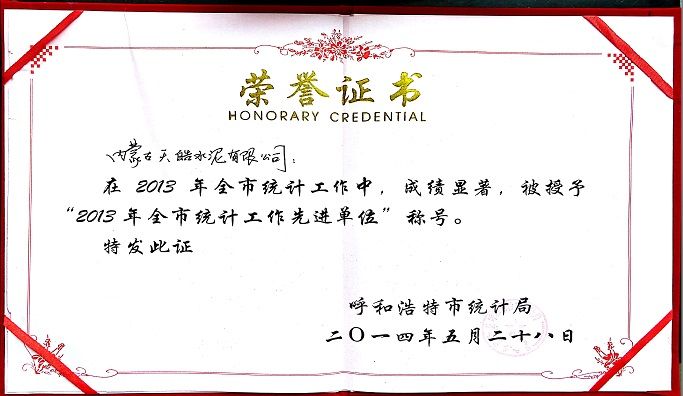 荣誉证书
HONORARY CREDENTIAL
内蒙古天皓水泥有限公司：
在 2013 年全市统计工作中，成绩显著，被授予
“2013 年全市统计工作先进单位”称号。
特发此证
呼和浩特市统计局
二〇一四年五月二十八日